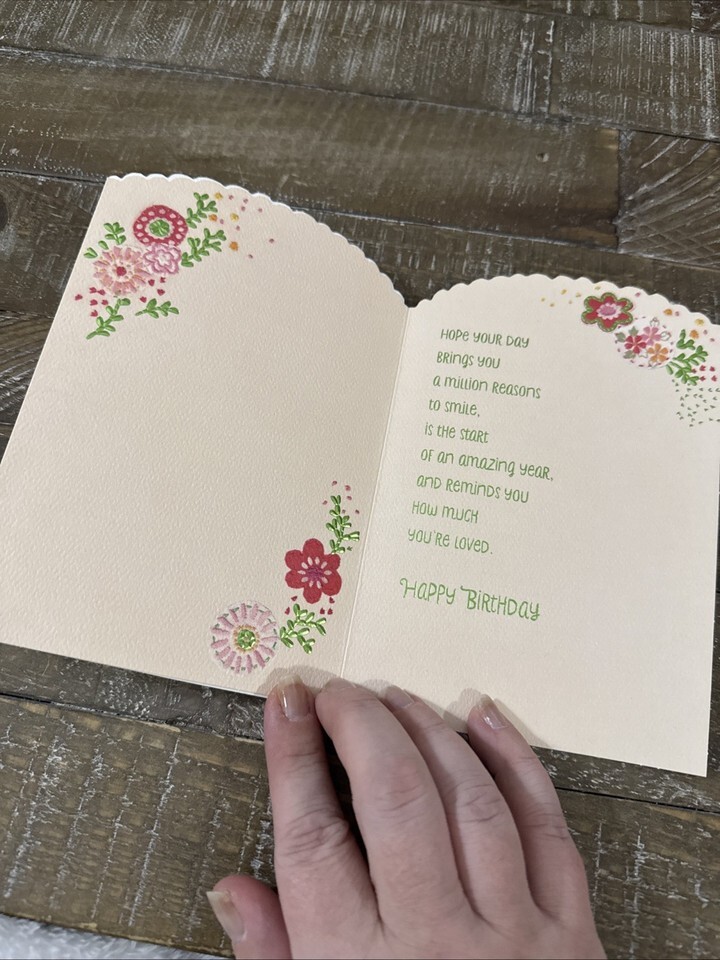 Hope your day
brings you
a million reasons
to smile,
is the start
of an amazing year,
and reminds you
how much
you're loved.
Happy Birthday